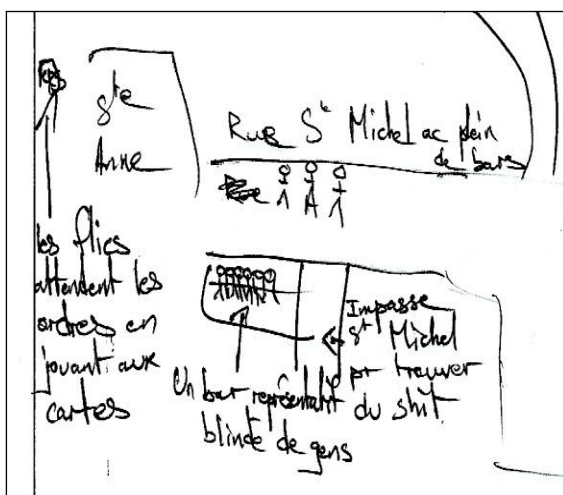 Ste
Anne
Rue St Michel ac plein
de bars
les flics
attendent les
ordres en
jouant aux
cartes
Un bar représentatif
blindé de gens
Impasse
St Michel
pr trouver
du shit